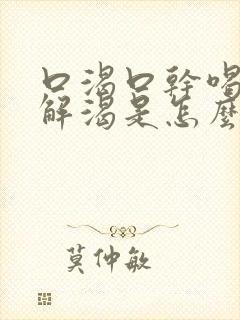 口渴口幹喝
解渴是怎麼
莫仲敏